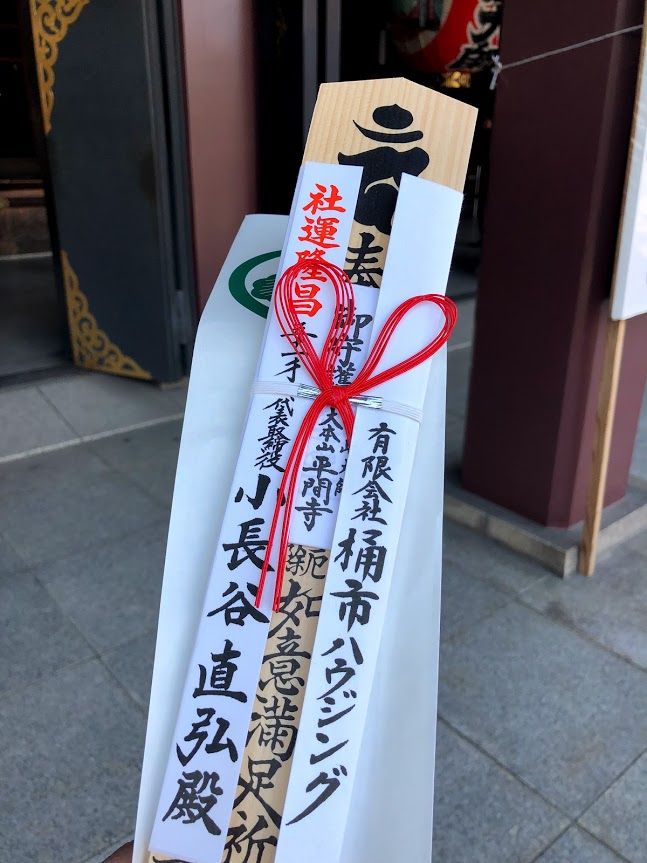 有限会社
桶市ハウジング
奉
除厄 如意満足祈
御守護
大本山平間寺
社運隆昌
代表取締役
小長谷直弘殿